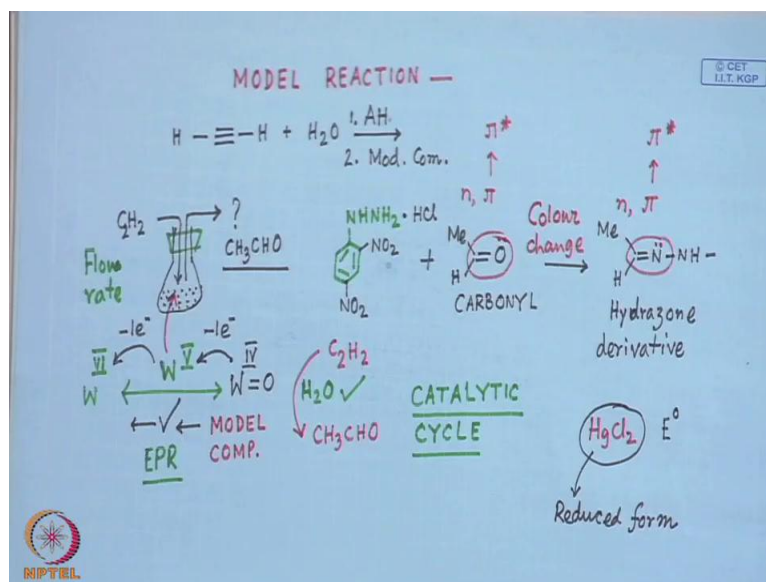 MODEL REACTION —
© CET
I.I.T. KGP
H - ≡ - H + H₂O
1. AH.
2. Mod. Com.
π*
π*
n, π
n, π
C₂H₂
?
CH₃CHO
Flow
rate
NHNH₂ • HCl
NO₂
NO₂
+
Me
=Ö
H
CARBONYL
Colour
change
Me
=N̈-NH-
H
Hydrazone
derivative
-1e⁻
-1e⁻
VI
W
V
W
IV
W=O
MODEL
COMP.
EPR
C₂H₂
H₂O ✓
CH₃CHO
CATALYTIC
CYCLE
HgCl₂ E⁰
Reduced form
NPTEL